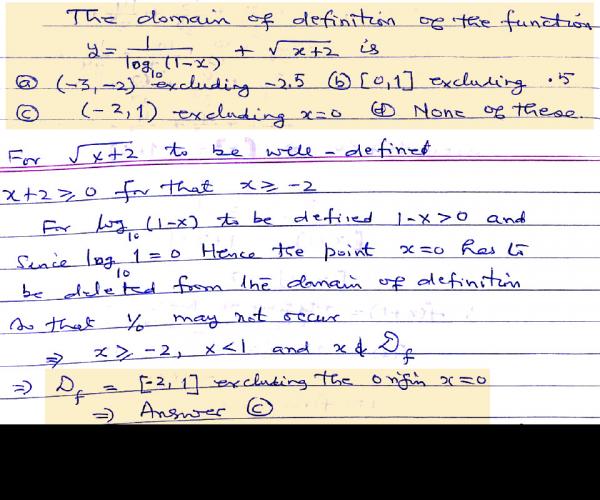 The domain of definition of the function
y = 1/log₁₀(1-x) + √x+2 is
ⓐ (-3,-2) excluding -2.5 ⓑ [0,1] excluding .5
ⓒ (-2,1) excluding x=0 ⓓ None of these.
For √x+2 to be well-defined
x+2 ≥ 0 for that x ≥ -2
For log₁₀(1-x) to be defined 1-x>0 and
Since log₁₀ 1 = 0 Hence the point x=0 has to
be deleted from the domain of definition
so that 1/0 may not occur
⇒ x ≥ -2, x<1 and x ∉ D_f
⇒ D_f = [-2,1] excluding the origin x=0
⇒ Answer ⓒ